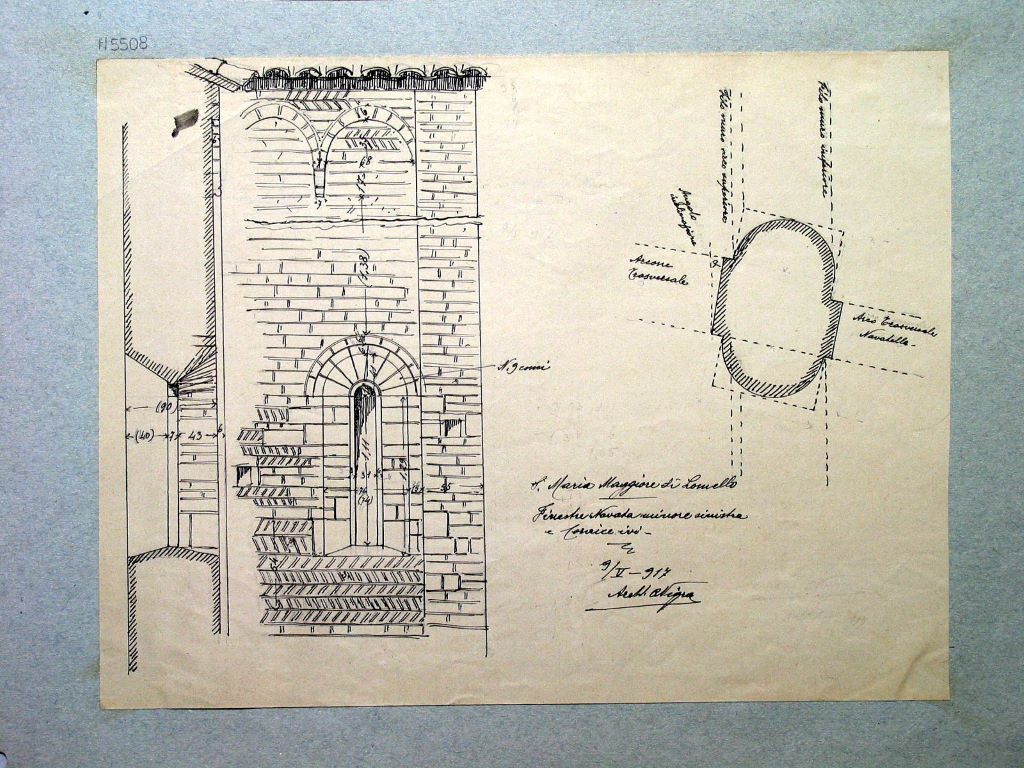 N5508
Filo muro arco superiore
Filo muro inferiore
Angolo
Arcone
Trasversale
Arco Trasversale
Navatella
N. 9 conci
(1,38)
68
(90)
(40)
7
43
6
1,11
31
76
(74)
55
S. Maria Maggiore di Lomello
Finestre Navata minore sinistra
e Cornice ivi-
9/V-917
Archt. CNigra